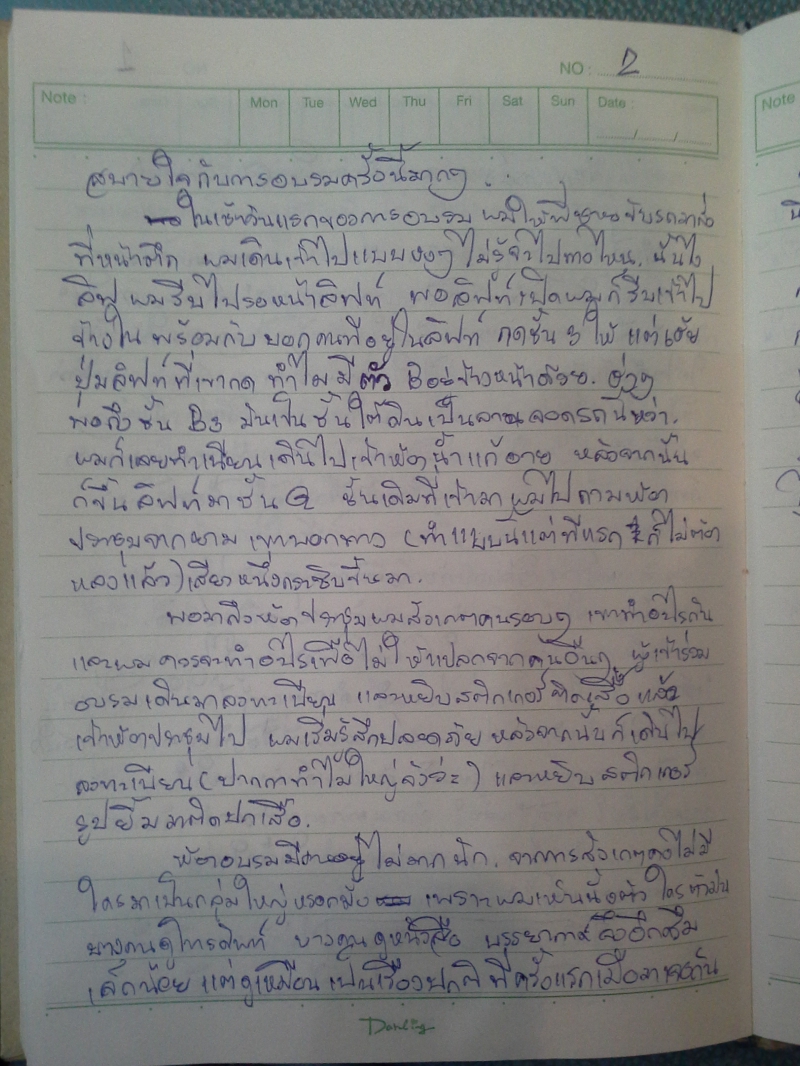 1
NO : 2
Note :
Mon Tue Wed Thu Fri Sat Sun Date :
/ /
Note
สบายใจกับการอบรมครั้งนี้มากๆ
ในเช้าวันแรกของการอบรม ผมให้พี่ ขับรถมาส่ง
ที่หน้าตึก ผมเดินเข้าไปแบบงงๆ ไม่รู้จะไปทางไหน. นั่นไง
ลิฟ ผมรีบไปรอหน้าลิฟท์ พอลิฟท์เปิดผมก็รีบเข้าไป
ข้างใน พร้อมกับบอกคนที่อยู่ในลิฟท์ กดชั้น 3 ให้ แต่เอ๊ย
ปุ่มลิฟท์ที่เขากด ทำไมมี ตัว B อยู่ข้างหน้าด้วย.
พอถึงชั้น B3 มันเป็นชั้นใต้ดินเป็นลานจอดรถนี่หว่า.
ผมก็เลยทำเนียนเดินไปเข้าห้องน้ำแก้อาย หลังจากนั้น
ก็ขึ้นลิฟท์มาชั้น G ชั้นเดิมที่เข้ามา ผมไปถามห้อง
ประชุมจากยาม เขาบอกทาง (ทำแบบนี้แต่ทีแรก ก็ไม่ต้อง
หลงแล้ว) เสียงหนึ่งกระซิบขึ้นมา.
พอมาถึงห้องประชุมผมสังเกตคนรอบๆ เขาทำอะไรกัน
และผมควรจะทำอะไรเพื่อไม่ให้แปลกจากคนอื่นๆ ผู้เข้าร่วม
อบรมเดินมาลงทะเบียน และหยิบสติกเกอร์ติดเสื้อ แล้ว
เข้าห้องประชุมไป ผมเริ่มรู้สึกปลอดภัย หลังจากนั้นก็เดินไป
ลงทะเบียน (ปากกาทำไมใหญ่จังว่ะ) และหยิบสติกเกอร์
รูปยิ้มมาติดปกเสื้อ.
ห้องอบรมมีคนอยู่ไม่มากนัก. จากการสังเกตคงไม่มี
ใครมาเป็นกลุ่มใหญ่หรอกมั้ง เพราะผมเห็นนั่ง ใคร
บางคนดูโทรศัพท์ บางคนดูหนังสือ บรรยากาศ อึมครึม
เล็กน้อย แต่ดูเหมือนเป็นเรื่องปกติ ที่ครั้งแรกเมื่อมาเจอกัน
Darling